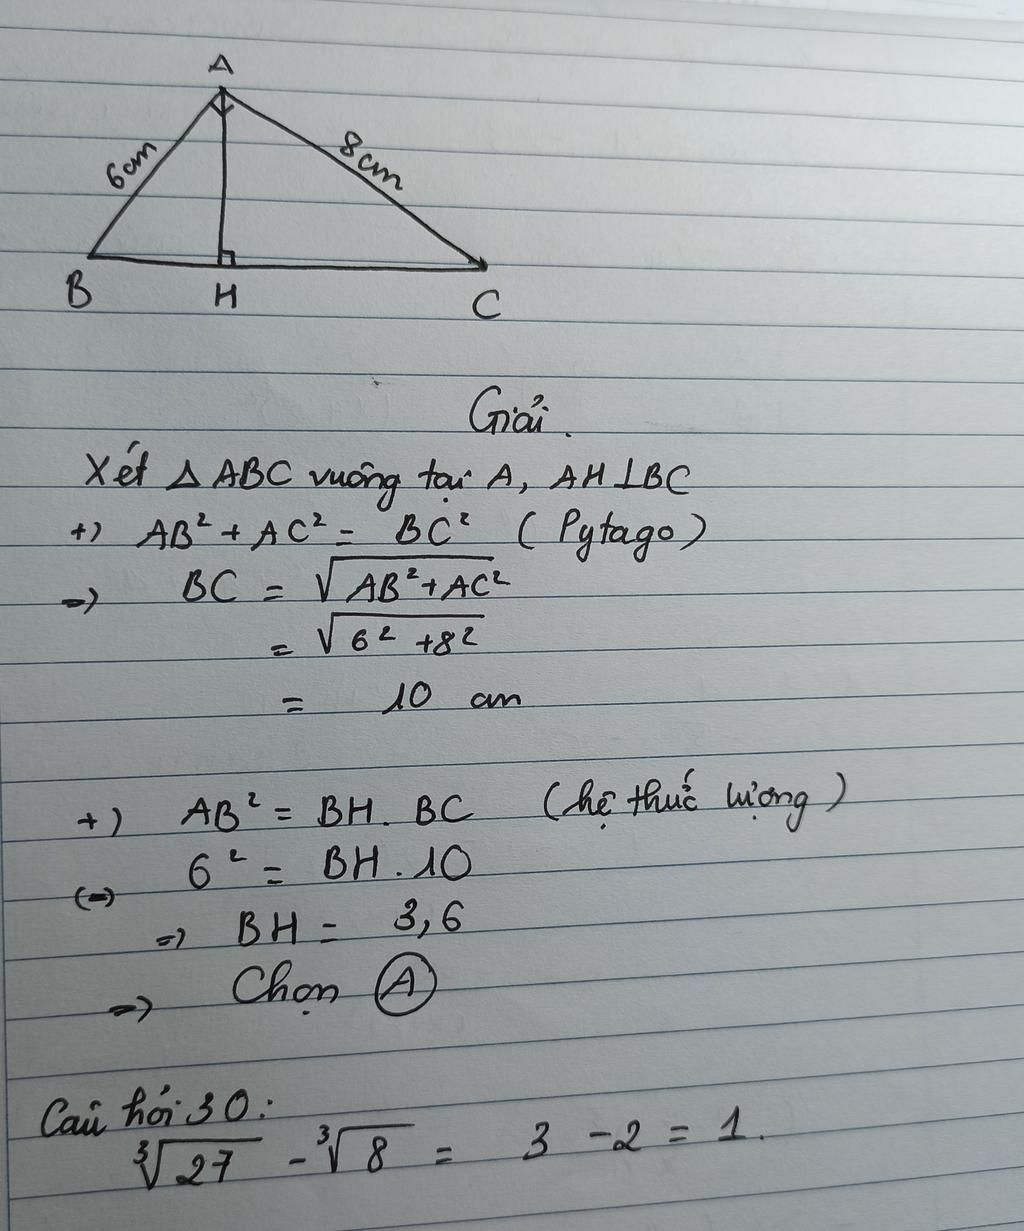 A
6cm
8cm
B
H
C
Giải.
Xét Δ ABC vuông tại A, AH ⊥ BC
+) AB² + AC² = BC² (Pytago)
=> BC = √AB² + AC²
= √6² + 8²
= 10 cm
+) AB² = BH. BC (hệ thức lượng)
(=) 6² = BH . 10
=> BH = 3,6
=> Chọn Ⓐ
Câu hỏi 30:
∛27 - ∛8 = 3 - 2 = 1.